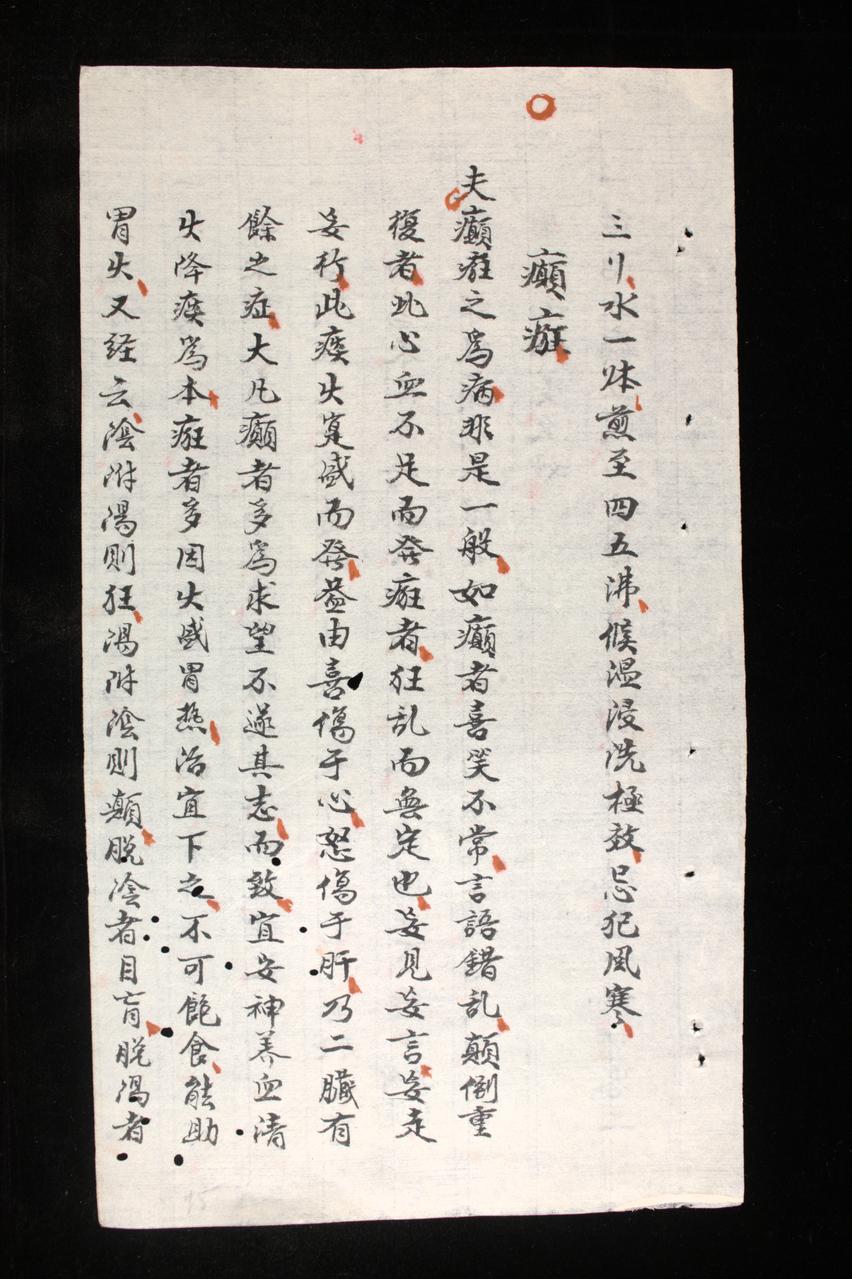 三刂水一抹煎至四五沸候溫浸洗極效忌犯風寒
癲㾮
夫癲㾮之為病非是一般如癲者喜笑不常言語錯乱顛倒重
復者此心血不足而発㾮者狂乱而無定也妄見妄言妄走
妄行此痰火寔盛而発蓋由喜傷于心怒傷于肝乃二臟有
餘之症大凡癲者多為求望不遂其志而致宜安神养血清
火降痰為本㾮者多因火盛胃热治宜下之不可飽食能助
胃火又経云陰附陽則狂陽附陰則顛脫陰者目盲脫陽者